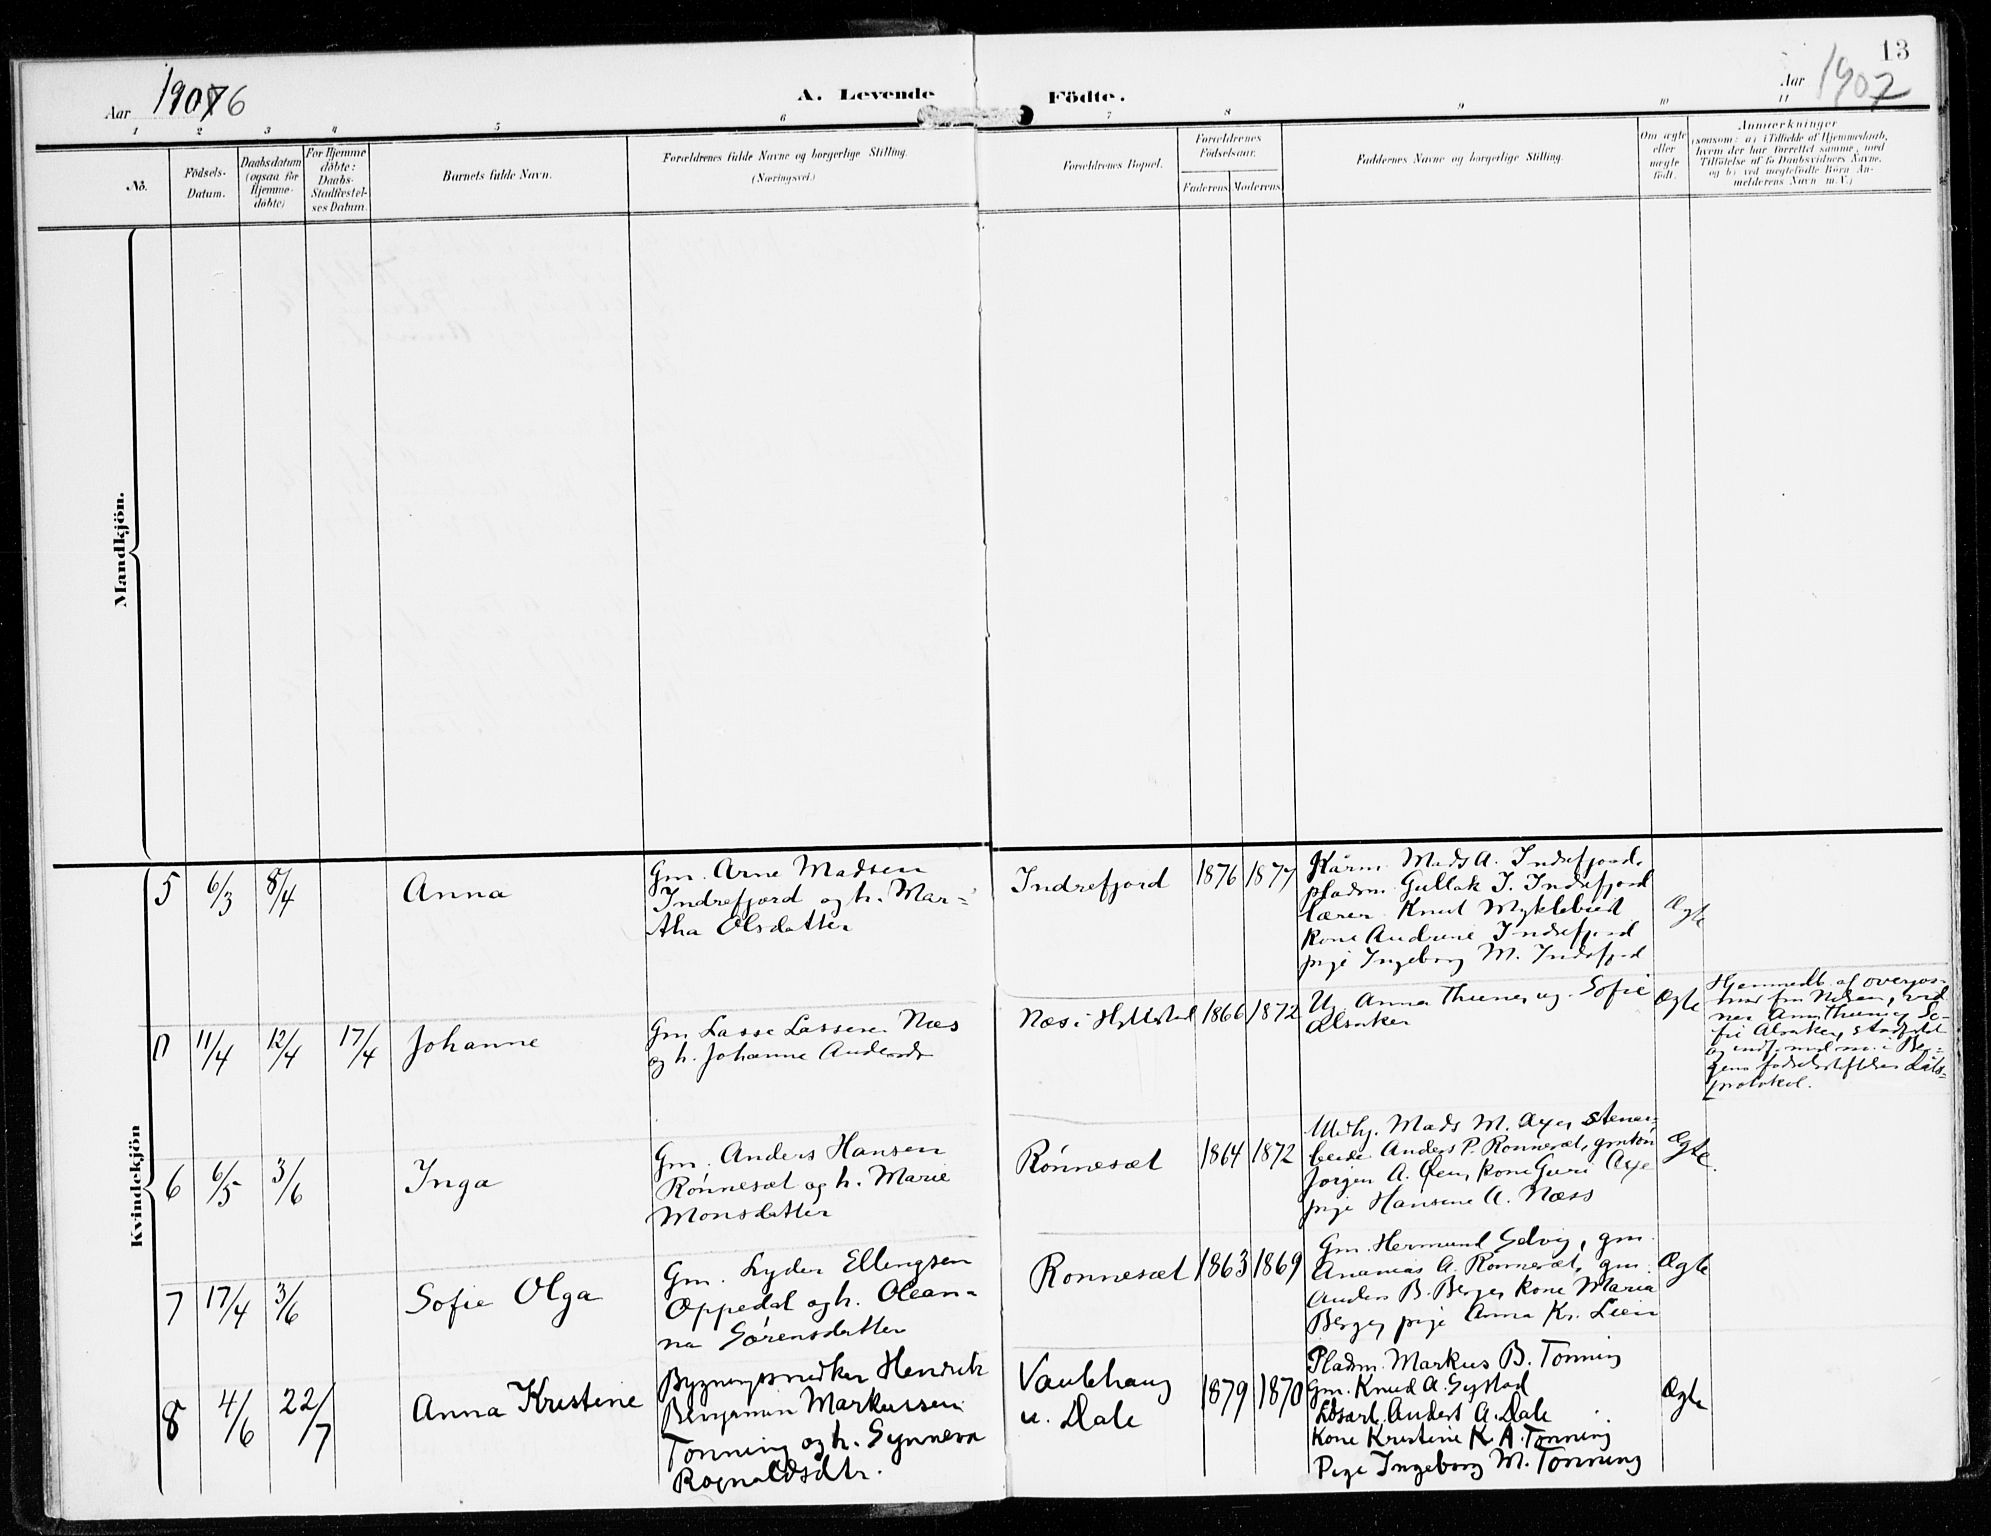 13
Aar 19076
A. Levende Födte.
Aar 1907
1 2 3 4 5 6 7 8 9 10 11
No.
Födsels-
Datum.
Daabsdatum
(ogsaa for
Hjemme-
döbte)
For Hjemme
döbte:
Daabs-
Stadfæstel-
ses Datum.
Barnets fulde Navn.
Forældrenes fulde Navne og borgerlige Stilling.
(Næringsvei.)
Forældrenes Bopæl.
Forældrenes
Födselsaar.
Faderens. Moderens.
Faddernes Navne og borgerlige Stilling.
Om ægte
eller
uægte
födt.
Anmærkninger
(saasom: a) i Tilfælde af Hjemmedaab,
hvem der har forrettet samme, med
Tilföielse af to Daabsvidners Navne,
og b) ved uægtefödte Börn An-
melderens Navn m. V.)
Mandkjön.
Kvindekjön
5 6/3 8/4 Anna
Gm. Arne Madsen
Indrefjord og h. Mar-
tha Olsdatter
Indrefjord 1876 1877
Kårm. Mads A. Indrefjord,
pladsm. Gullak I. Indrefjord
lærer Knut Myklebust
kone Andrine Indrefjord
pige Ingeborg M. Indrefjord
Ægte
11/4 12/4 17/4 Johanne
Gm. Lasse Lassen Næs
og h. Johanne Andersdr
Næs i Hyllestad 1866 1872
Anna Thunes og Sofie
Alsaker
Ægte
Hjemmedb. af overjor-
mor fru Nilsen, vid-
ner Anna Thunes, So-
fie Alsaker, stadfæstet
protokol.
6 6/5 3/6 Inga
Gm. Anders Hansen
Rönnesæt og h. Marie
Monsdatter
Rönnesæt 1864 1872
Mads M. Øye, stenar-
beide Anders P. Rönnesæt,
Jörgen A. Øen, kone Guri Øye
pige Hansine A. Næss
Ægte.
7 17/4 3/6 Sofie Olga
Gm. Lyder Ellingsen
Oppedal og h. Olean-
na Sörensdatter
Ronnesæt 1863 1869
Gm. Hermund Selvig, gm.
Ananias A. Rönnesæt, gm.
Anders B. Berge, kone Maria
Berge, pige Anna Kr. Lien
Ægte
8 4/6 22/7 Anna Kristine
Bygningssnedker Hendrik
Benjamin Markussen
Tonning og h. Synneva
Ragnaldsdtr.
Vaulehaug
u. Dale
1879 1870
Pladsm. Markus B. Tonning
Gm. Knud A. Systad
Anders A. Dale
Kone Kristine K. A. Tonning
Pige Ingeborg M. Tonning
Ægte